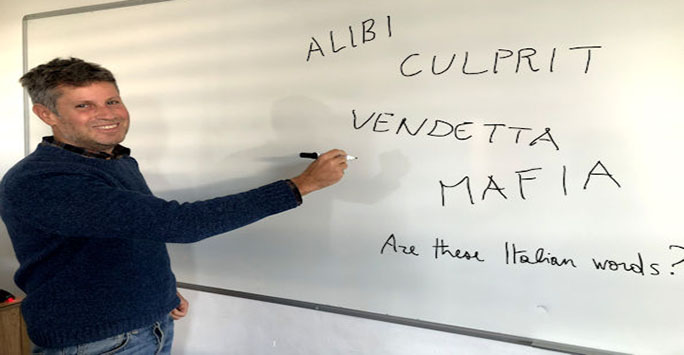 ALIBI
CULPRIT
VENDETTA
MAFIA
Are these Italian words?